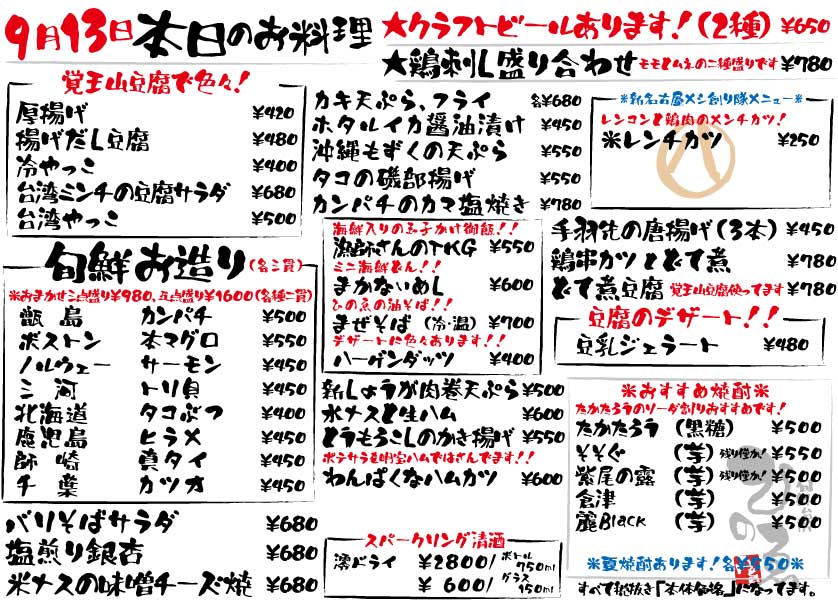 9月13日 本日のお料理
★クラフトビールあります！(2種) ¥650
★鶏刺し盛り合わせ モモとムネの二種盛りです ¥780
覚王山豆腐で色々！
厚揚げ ¥420
揚げだし豆腐 ¥480
冷やっこ ¥400
台湾ミンチの豆腐サラダ ¥680
台湾やっこ ¥500
旬鮮お造り (各三貫)
※おまかせ三点盛り¥980、五点盛り¥1600(各種二貫)
甑島 カンパチ ¥500
ボストン 本マグロ ¥550
ノルウェー サーモン ¥450
三河 トリ貝 ¥450
北海道 タコぶつ ¥400
鹿児島 ヒラメ ¥450
師崎 真タイ ¥450
千葉 カツオ ¥450
バリそばサラダ ¥680
塩煎り銀杏 ¥680
米ナスの味噌チーズ焼 ¥680
カキ天ぷら、フライ 各¥680
ホタルイカ醤油漬け ¥450
沖縄もずくの天ぷら ¥550
タコの磯部揚げ ¥550
カンパチのカマ塩焼き ¥780
海鮮入りの玉子かけ御飯！！
漁師さんのTKG ¥550
ミニ海鮮どん！！
まかないめし ¥600
ひの魚の油そば！！
まぜそば (冷・温) ¥700
デザートに色々あります！！
ハーゲンダッツ ¥400
新しょうが肉巻天ぷら ¥500
水ナスと生ハム ¥600
とうもろこしのかき揚げ ¥550
ポテサラを明宝ハムではさんでます！！
わんぱくなハムカツ ¥600
スパークリング清酒
澪ドライ ¥2800/ボトル750ml
¥600/グラス150ml
※新名古屋メシ創り隊メニュー※
レンコンと鶏肉のメンチカツ！
米レンチカツ ¥250
手羽先の唐揚げ(3本) ¥450
鶏串カツとどて煮 ¥780
どて煮豆腐 覚王山豆腐使ってます ¥780
豆腐のデザート！！
豆乳ジェラート ¥480
※おすすめ焼酎※
たかたろうのソーダ割りおすすめです！
たかたろう (黒糖) ¥500
そそぐ (芋) 残り僅か！ ¥550
紫尾の露 (芋) 残り僅か！ ¥500
倉津 (芋) ¥500
麗Black (芋) ¥500
※夏焼酎あります！各¥550※
すべて税抜き「本体価格」になってます。